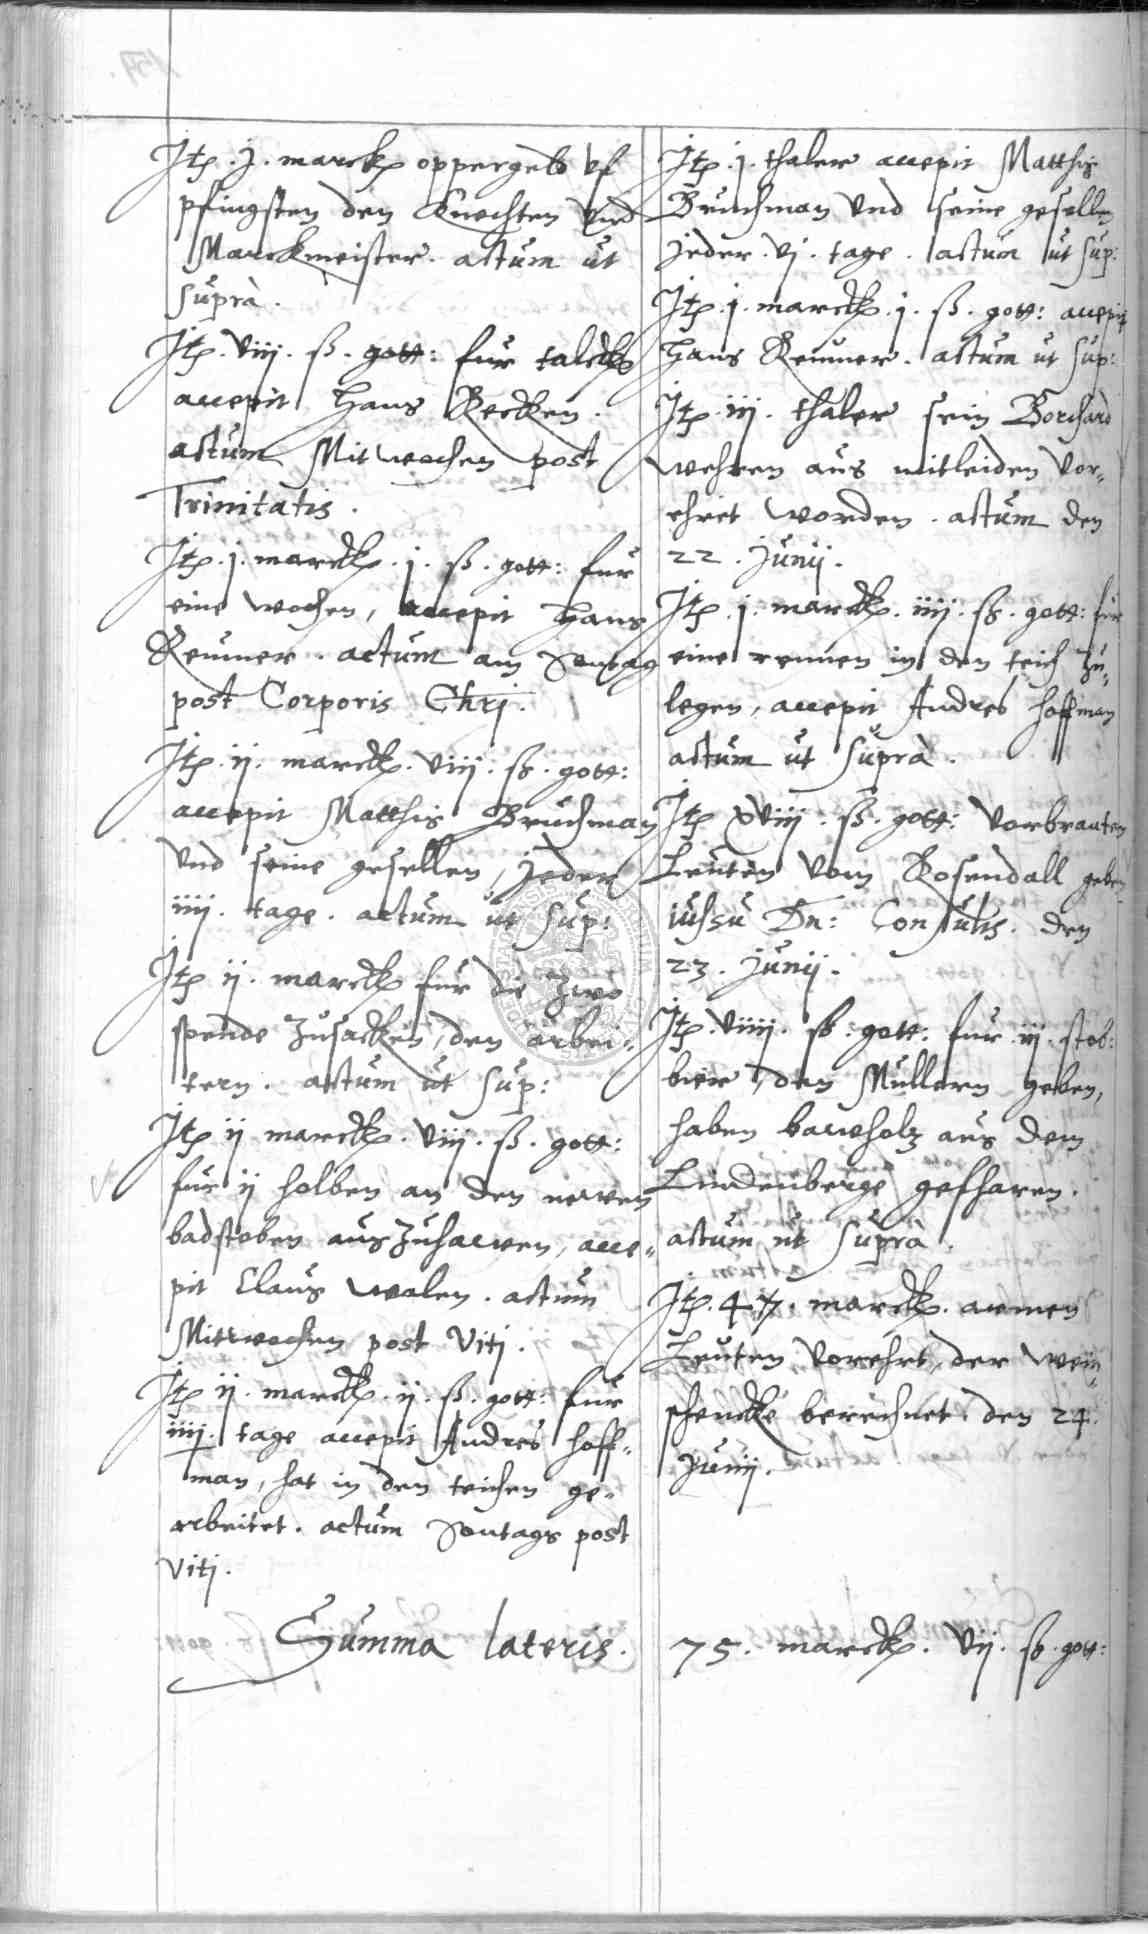 Itē. j. marckē oppergeld vf
pfingsten den Knechten vnd
Marckmeister. actum ut
suprà.
Itē. viij. ß. gott: fur talchkē
accepit Hans Recken.
actum Mitwochen post
Trinitatis.
Itē. j. marckē. j. ß. gott: fur
eine wochen, accepit Hans
Remmer. actum am Sontag
post Corporis Chrj.
Itē. ij. marckē. viij. ß. gott:
accepit Matthis Bruchman
vnd seine gesellen, jeder
iiij. tage. actum ut sup:
Itē ij. marckē fur die zwo
spende zusacken, den arbei-
tern. actum ut sup:
Itē ij marckē. viij. ß. gott:
fur ij holben an den newen
badstoben auszuhawen, acce-
pit Claus Walen. actum
Mittwochen post Viti.
Itē ij. marckē. ij. ß. gott: fur
iiij. tage accepit Andres Hoff-
man, hat in den teichen ge-
arbeitet. actum Sontags post
Viti.
Itē. j. thaler accepit Matthis
Bruchman vnd seine gesellen
jeder. vj. tage. actum ut sup:
Itē. j. marckē. j. ß. gott: accepit
Hans Remmer. actum ut sup:
Itē. iij. thaler sein Borchard
Wehren aus mitleiden vor-
ehret worden. actum den
22. Junij.
Itē. j. marckē. iiij. ß. gott: fur
eine rennen in den teich zu-
legen, accepit Andres Hoffman
actum ut suprà.
Itē xviij. ß. gott: vorbranten
Leuten vom Rosendall geben
iussu Dn: Consulis. den
23. Junij.
Itē. viiij. ß. gott: fur. iij. stob:
bier, den Mullern geben,
haben bauholz aus dem
Lindenberge gefharen.
actum ut suprà.
Itē. 47. marckē. armen
Leuten vorehrt, der wein-
schencke berechnet den 24.
Junij.
Summa lateris. 75. marckē. vij. ß. gott: